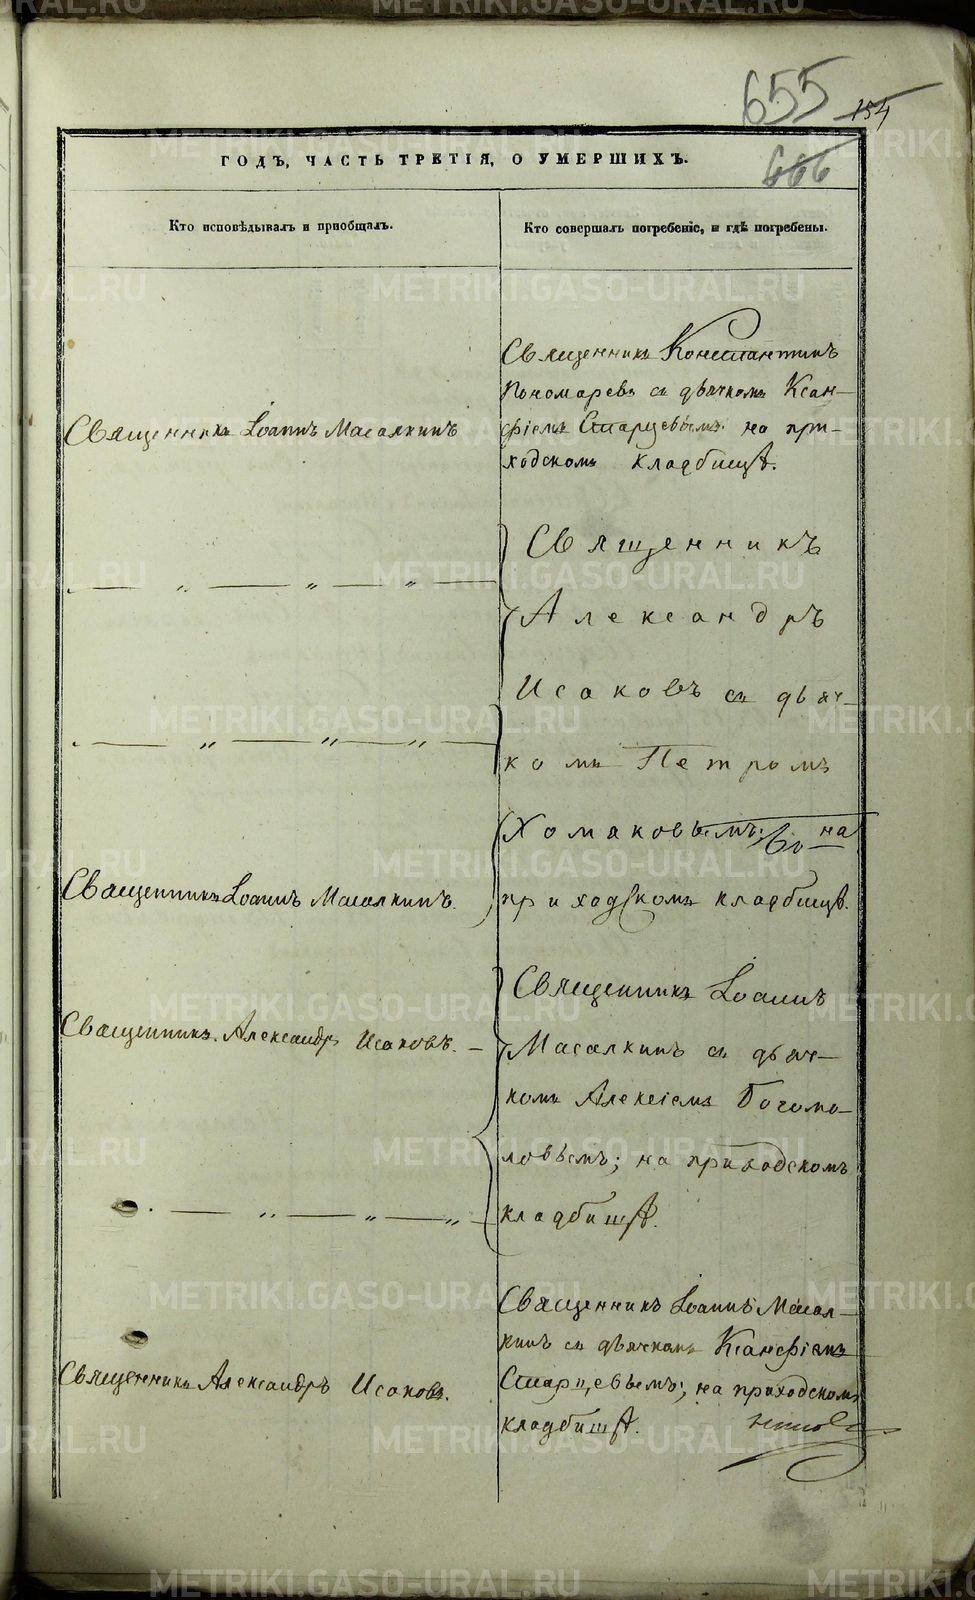 655
154
666
ГОДЪ, ЧАСТЬ ТРЕТІЯ, О УМЕРШИХЪ.
Кто исповѣдывалъ и приобщалъ.
Кто совершалъ погребеніе, и гдѣ погребены.
Священникъ Іоаннъ Масалкинъ
Священникъ Константинъ
Пономаревъ съ дьячкомъ Ксан-
фіемъ Старцевымъ на при-
ходскомъ кладбищѣ.
— „ — „ — „ —
— „ — „ — „ —
Священникъ Іоаннъ Масалкинъ.
Священникъ
Александръ
Исаковъ съ дьяч-
комъ Петромъ
Хомаковымъ; на
приходскомъ кладбищѣ.
Священникъ Александръ Исаковъ. —
— „ — „ — „ —
Священникъ Іоаннъ
Масалкинъ съ дьяч-
комъ Алексіемъ Богомо-
ловымъ; на приходскомъ
кладбищѣ.
Священникъ Александръ Исаковъ.
Священникъ Іоаннъ Масал-
кинъ съ дьячкомъ Ксанфіемъ
Старцевымъ; на приходскомъ
кладбищѣ.
METRIKI.GASO-URAL.RU